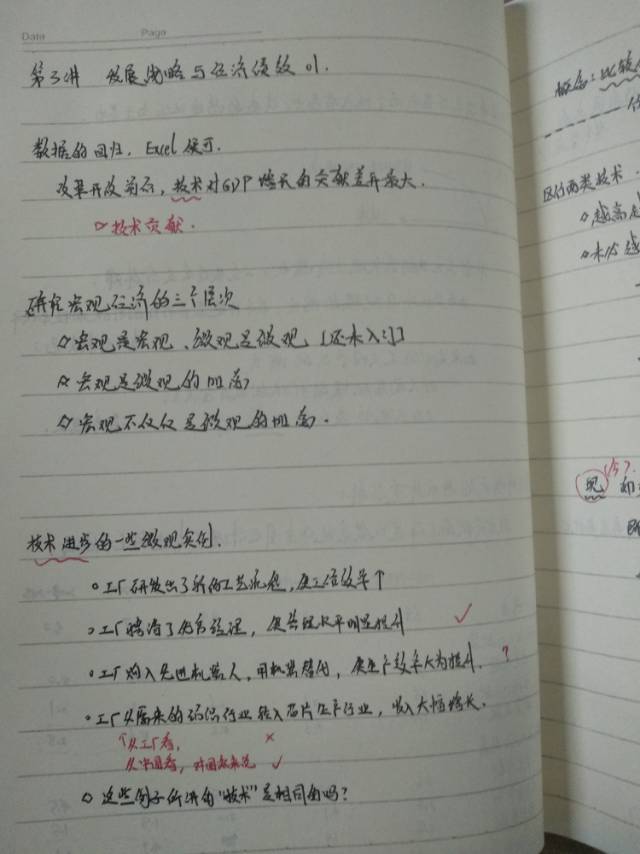 Date Page
第3讲 发展战略与经济绩效 01.
数据的回归, Excel 便可.
改革开放前后, 技术对GDP增长的贡献差异最大.
技术贡献.
研究宏观经济的三个层次
宏观是宏观、微观是微观 [还未入门]
宏观是微观的加总
宏观不仅仅是微观的加总.
技术进步的一些微观实例.
工厂研发出了新的工艺流程, 使工作效率↑
工厂聘请了优秀经理, 使管理水平明显提升 ✓
工厂购入先进机器人, 用机器替代, 使生产效率大为提升. ?
工厂从原来的纺织行业转入芯片生产行业, 收入大幅增长.
↑从工厂看, ×
从中国看, 对国家来说 ✓
这些例子所讲的"技术"是相同的吗?
概念: 比较
区分两类技术:
越高
未必越